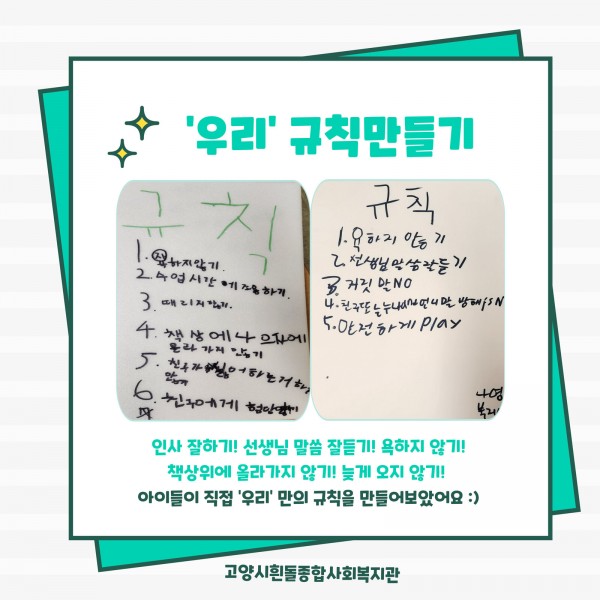 '우리' 규칙만들기
규칙
1. 욕하지않기.
2. 수업시간에 조용하기.
3. 때리지않기.
4. 책상에나 의자에
올라가지 않기
5. 친구가 싫어하는거 하
않기
6. 친구에게
규칙
1. 욕하지 않기
2. 선생님말씀잘듣기
3. 거짓말NO
4. 친구또는누나
5. 안전하게 Play
나영
인사 잘하기! 선생님 말씀 잘듣기! 욕하지 않기!
책상위에 올라가지 않기! 늦게 오지 않기!
아이들이 직접 '우리' 만의 규칙을 만들어보았어요 :)
고양시흰돌종합사회복지관